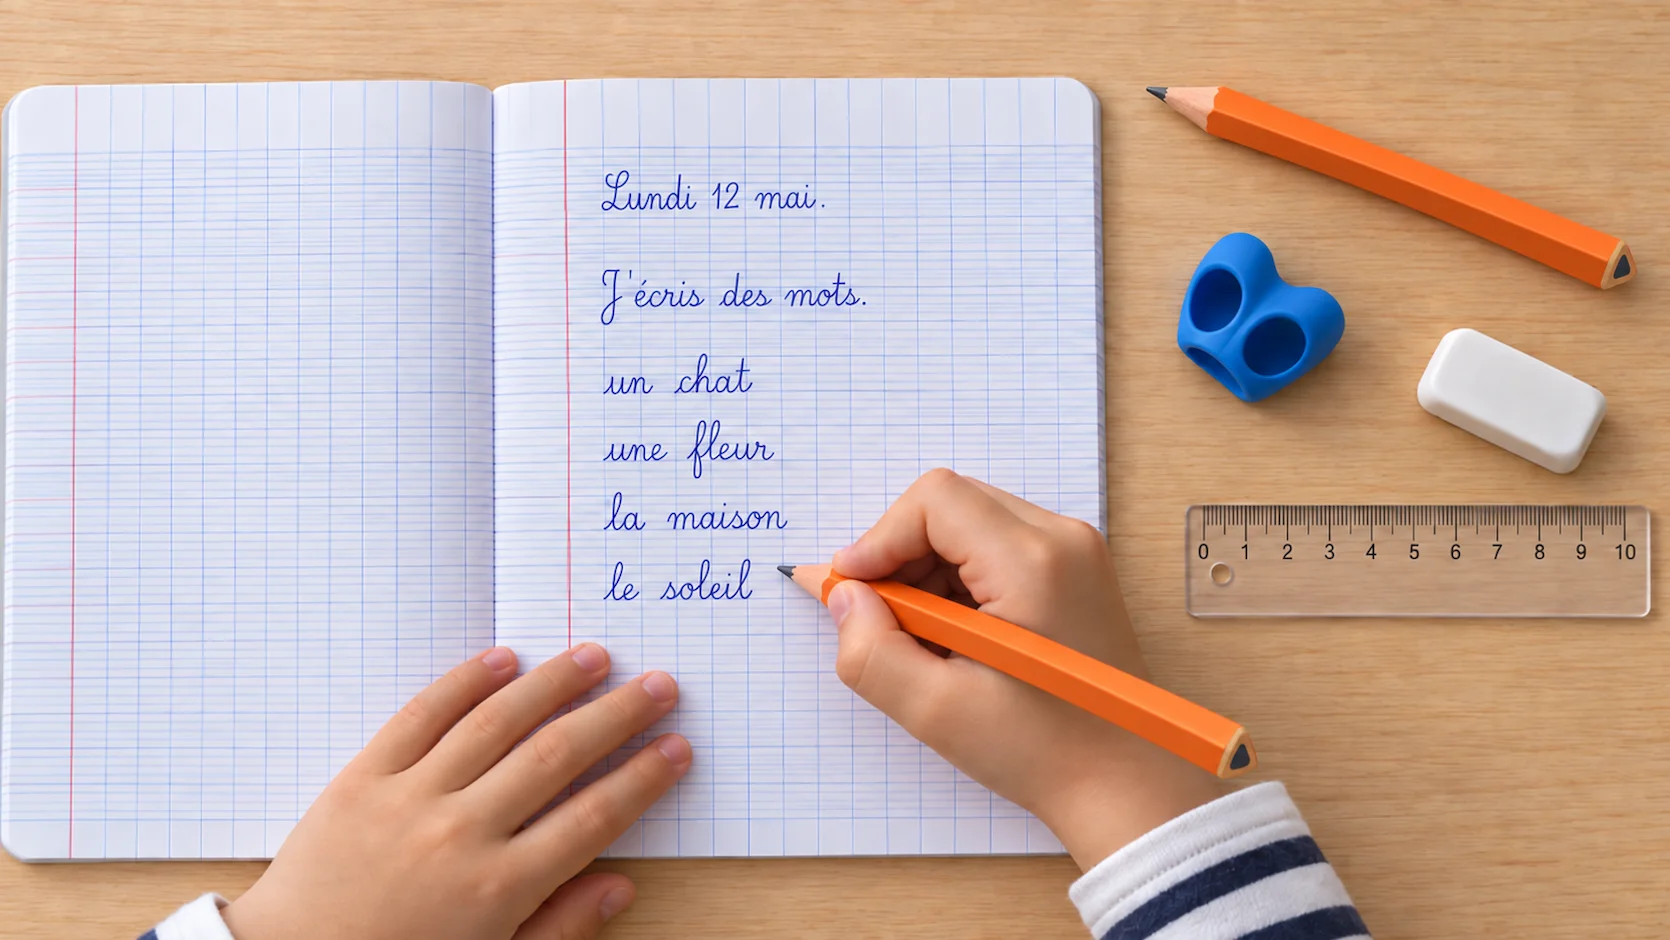 Lundi 12 mai.
J'écris des mots.
un chat
une fleur
la maison
le soleil
0 1 2 3 4 5 6 7 8 9 10